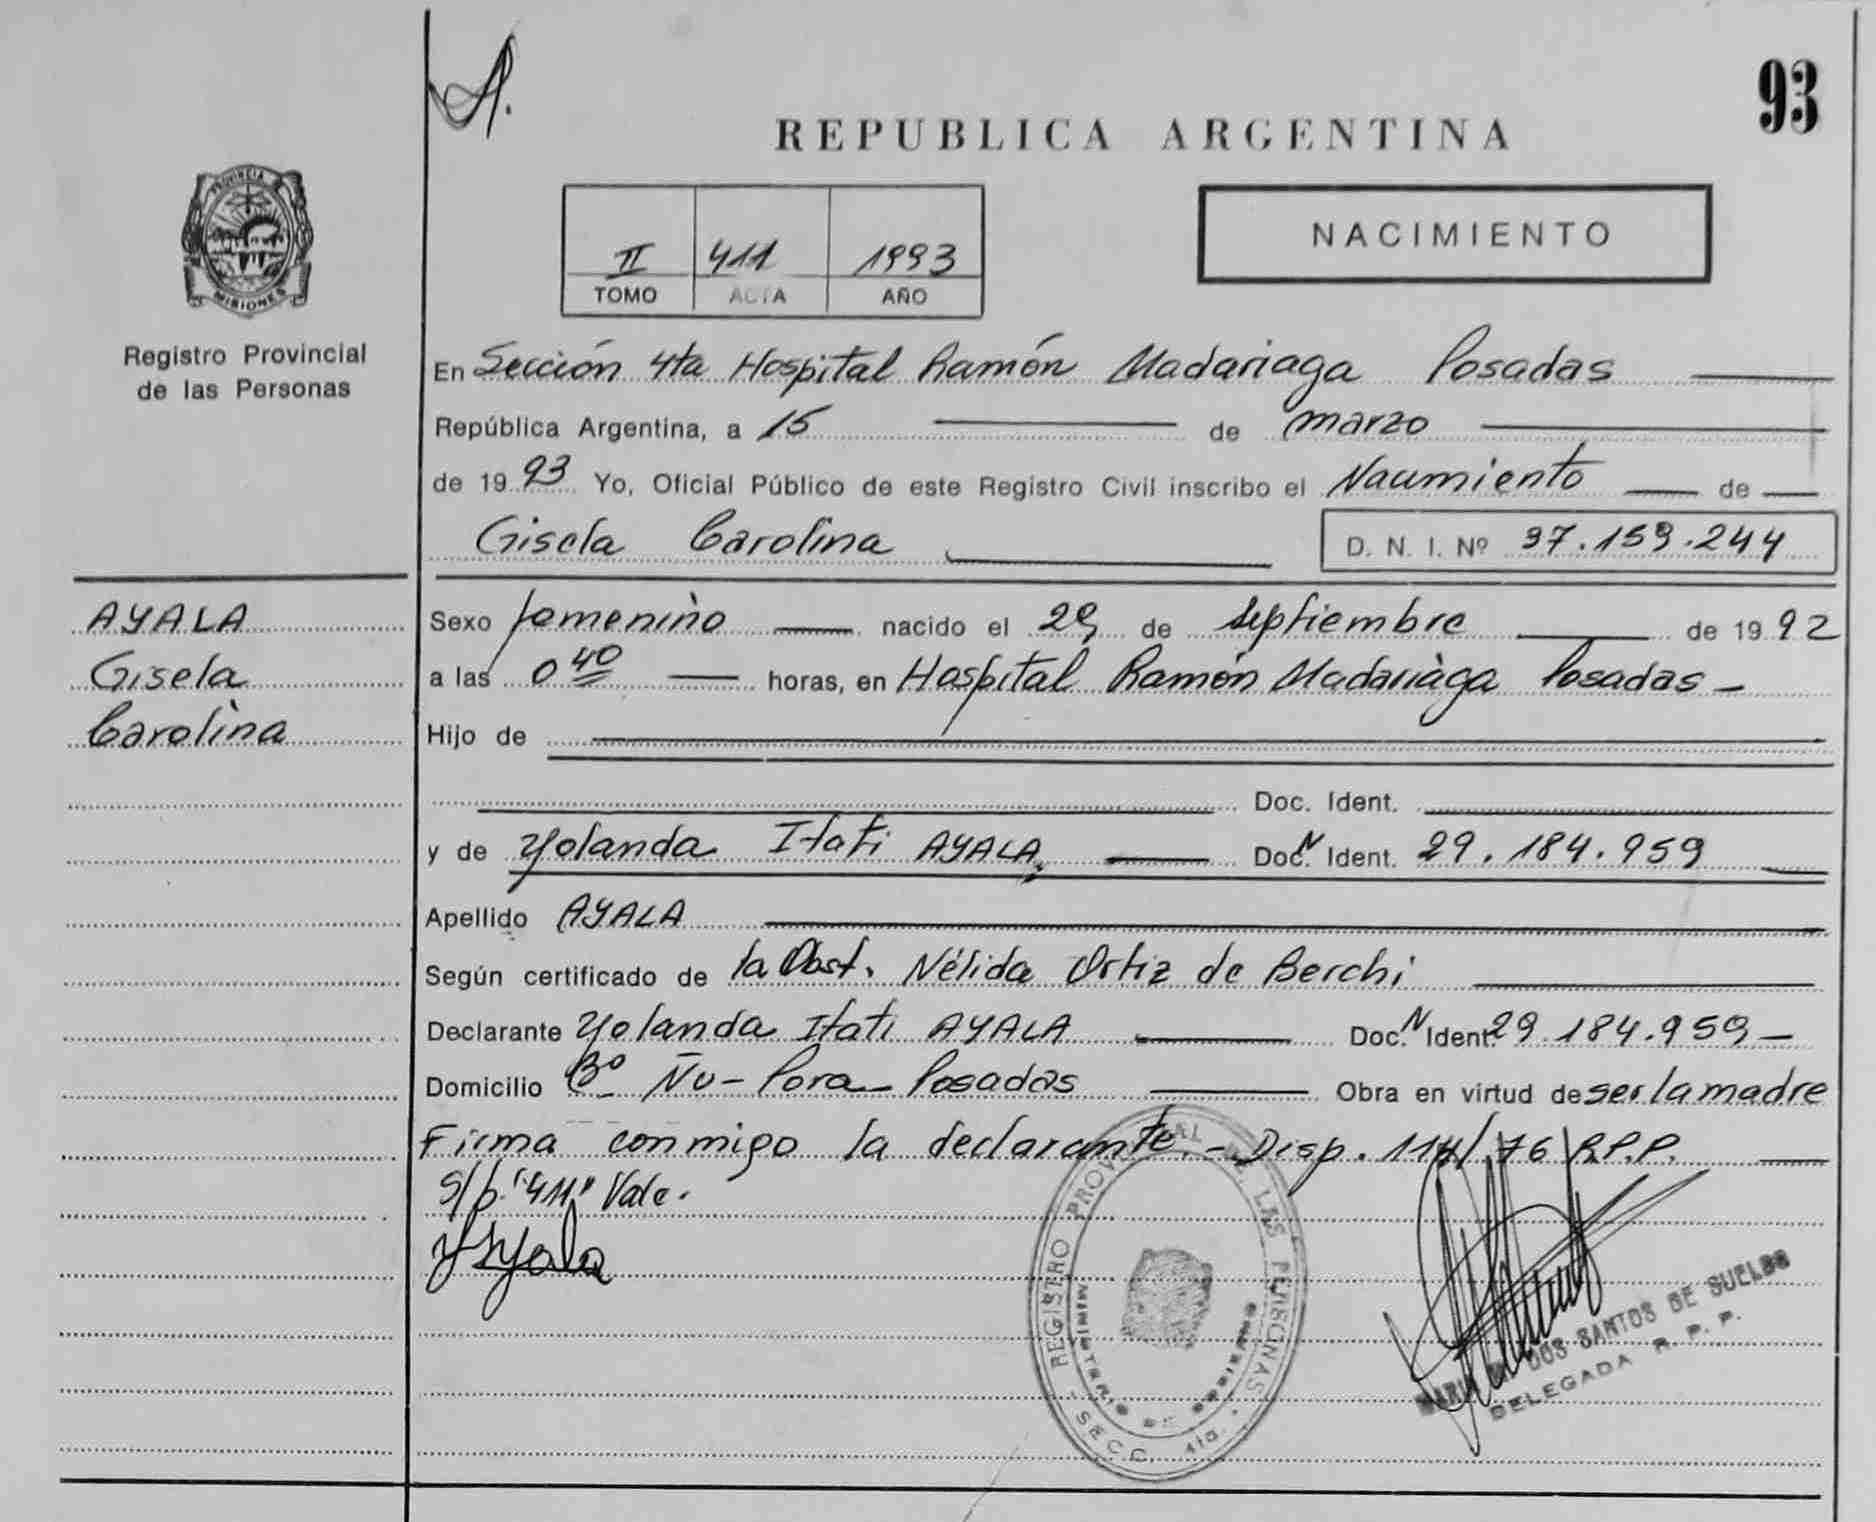 A.
93
REPUBLICA ARGENTINA
PROVINCIA DE
MISIONES
Registro Provincial
de las Personas
II 411 1993
TOMO ACTA AÑO
NACIMIENTO
En Sección 4ta Hospital Ramón Madariaga Posadas
República Argentina, a 15 de marzo
de 1993 Yo, Oficial Público de este Registro Civil inscribo el Nacimiento de
Gisela Carolina D. N. I. Nº 37.159.244
AYALA
Gisela
Carolina
Sexo femenino nacido el 29 de septiembre de 1992
a las 0 40 horas, en Hospital Ramón Madariaga Posadas
Hijo de
Doc. Ident.
y de Yolanda Itati AYALA, Doc. N Ident. 29.184.959
Apellido AYALA
Según certificado de la Obst. Nélida Ortiz de Berchi
Declarante Yolanda Itati AYALA Doc. N Ident. 29.184.959
Domicilio Bº Ñu-Pora Posadas Obra en virtud de ser la madre
Firma conmigo la declarante.- Disp. 114/76 R.P.P.
S/b. "411" Vale.
Y Ayala
REGISTRO PROVINCIAL DE LAS PERSONAS
MINISTERIO DE GOBIERNO
- SECC. 4ta. -
DOS SANTOS DE SUELDO
DELEGADA R. P. P.